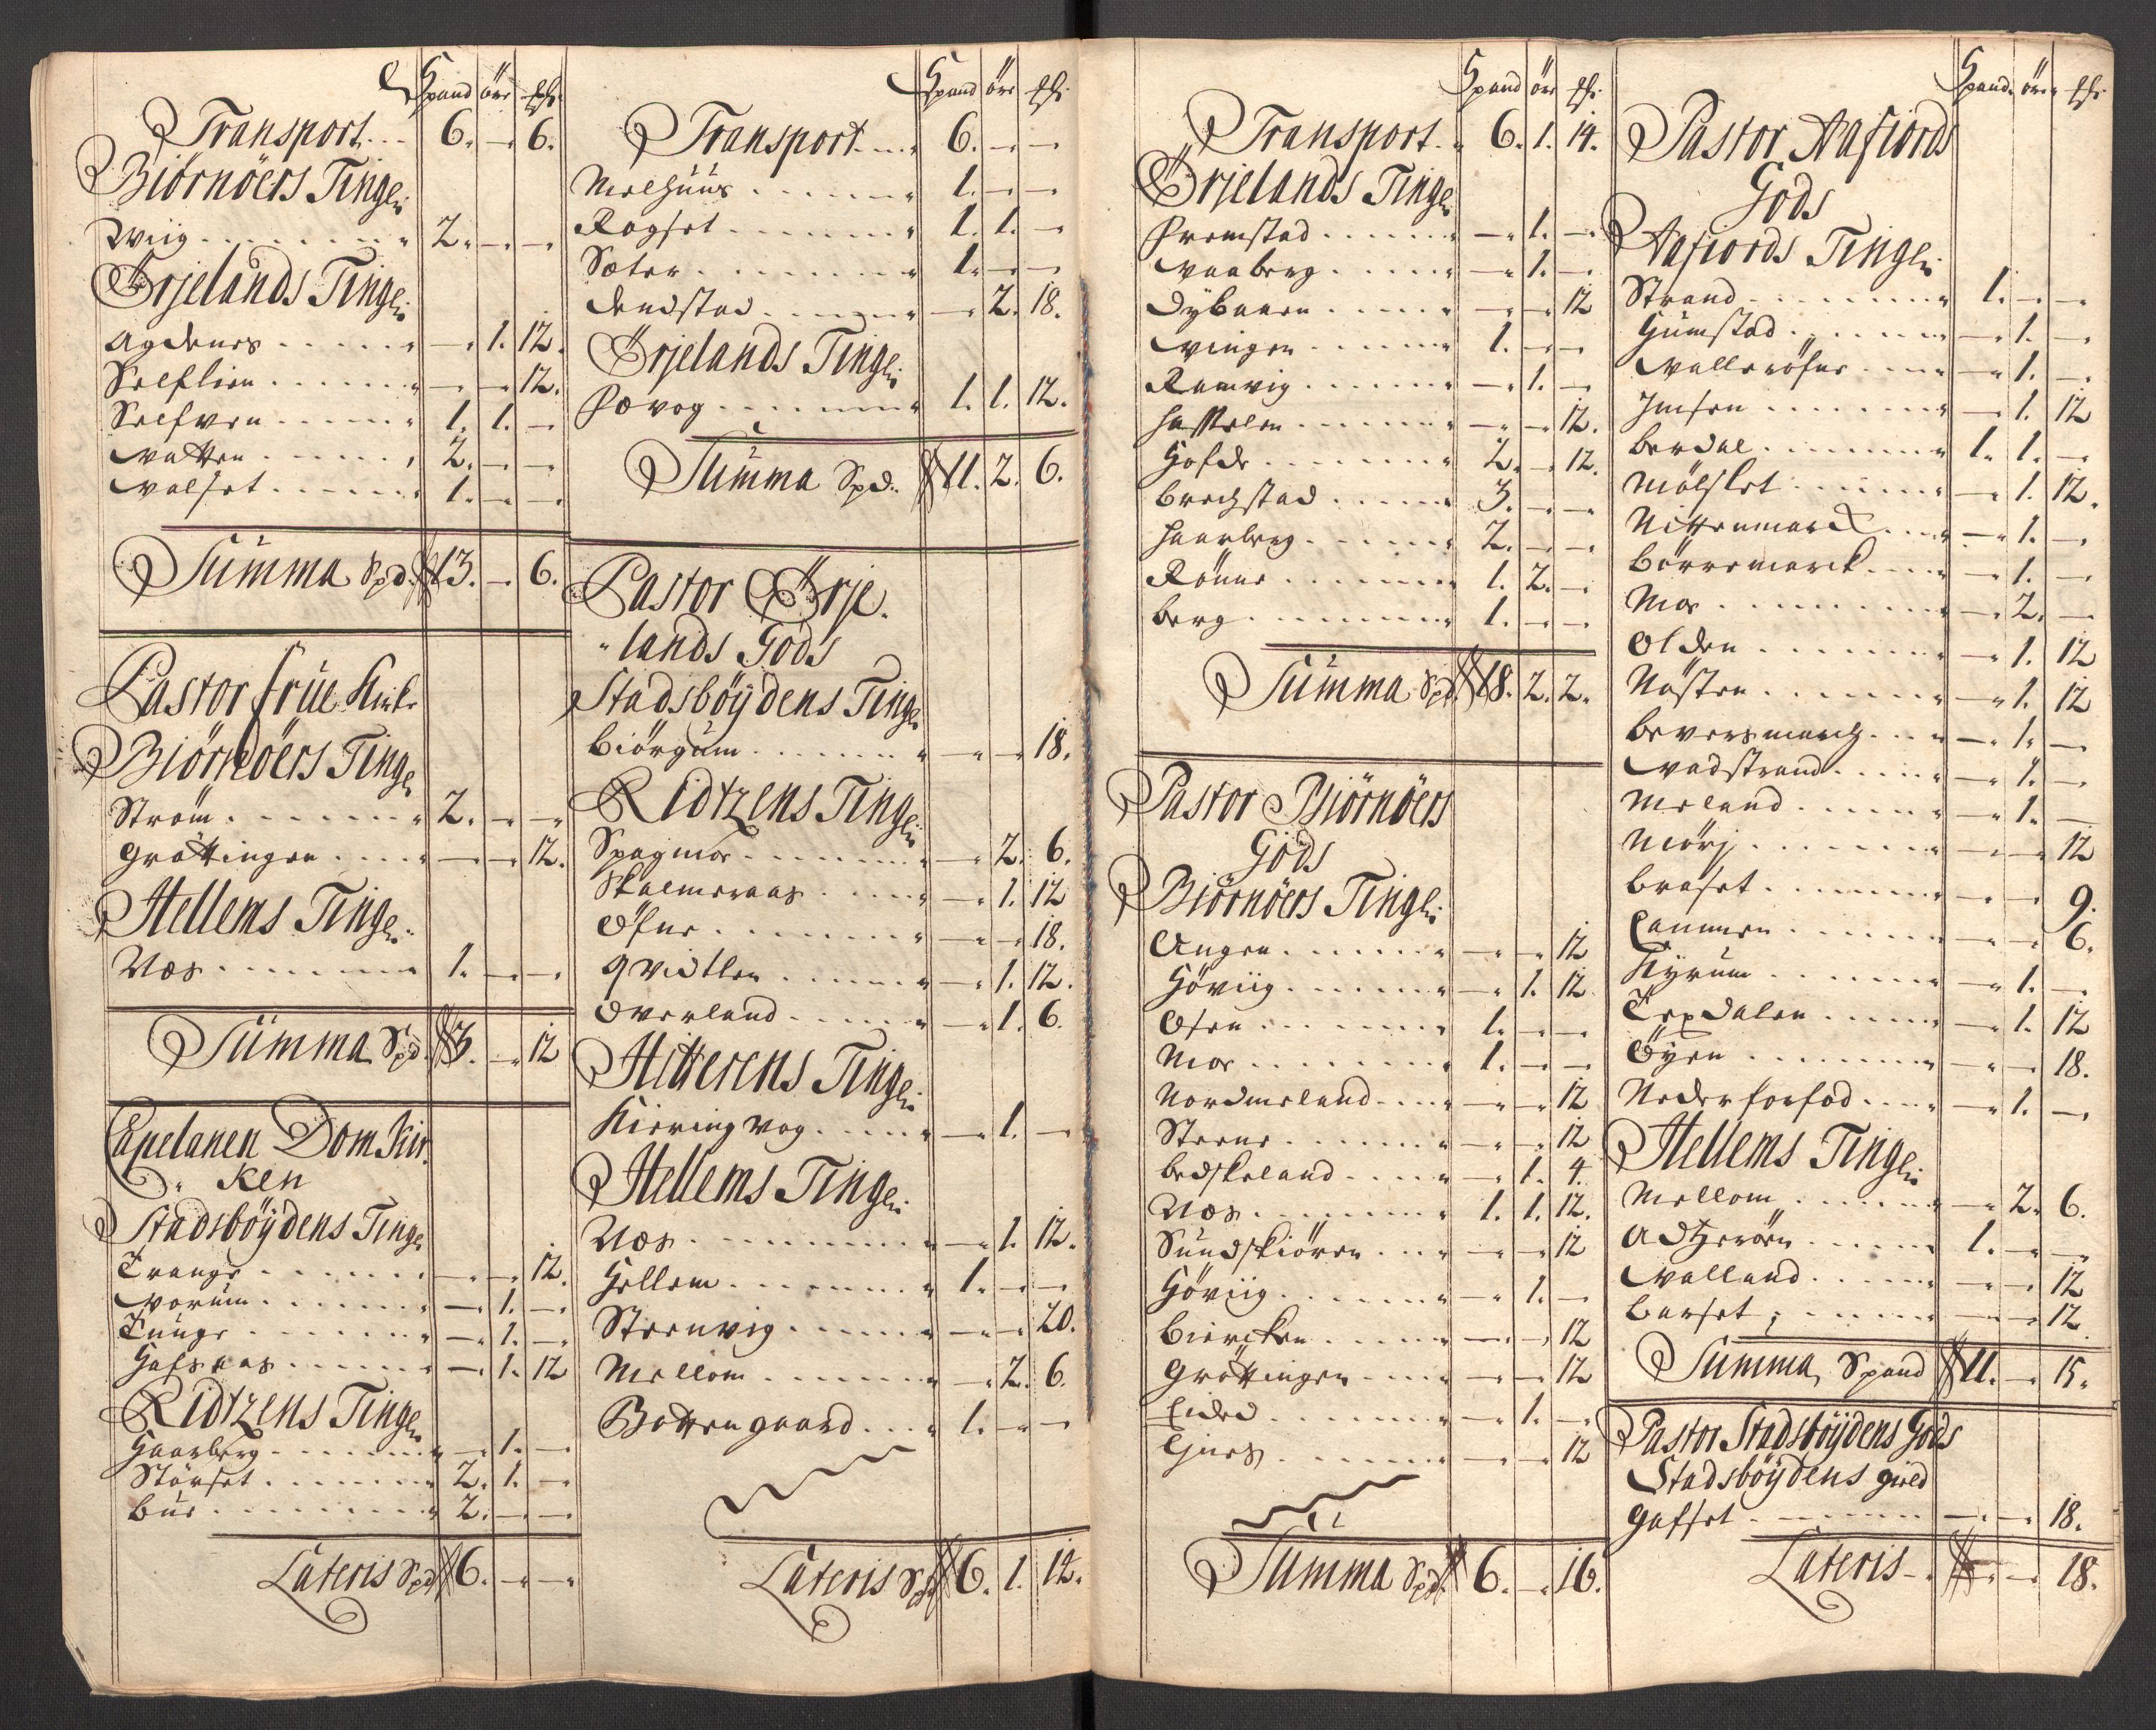 Spand öre ß.
Transport. . . 6. — 6.
Biörnöers Tingl:
Wiig . . . . . . . 2. — —
Ørjelands Tingl:
Agdenes . . . . . — 1. 12.
Selflien . . . . . — — 12.
Selfven . . . . . 1. 1. —
Vatten . . . . . 2. — —
Valset . . . . . 1. — —
Summa Spd. 13. — 6.
Pastor frue Kirke
Biörnöers Tingl
Ström . . . . . . 2. — —
Gröttingen . . . . — — 12.
Hellems Tingl:
Næs . . . . . . . 1. — —
Summa Spd. 3. — 12
Capelanen Dom Kir
ken
Stadsböÿdens Tingl
Trange . . . . . . — — 12.
Vorum . . . . . . — 1. —
Tunge . . . . . . — 1. —
Hafsaas . . . . . — 1. 12
Ridtzens Tingl
Haarberg . . . . . — 1. —
Störset . . . . . 2. 1. —
Bue . . . . . . . 2. — —
Lateris Spd 6. — —
Spand öre ß
Transport . . . 6. — —
Melhuus . . . . . 1. — —
Rogset . . . . . . 1. 1. —
Sæter . . . . . . 1. — —
Dendstad . . . . . — 2. 18.
Ørjelands Tingl:
Hovog . . . . . . 1. 1. 12.
Summa Spd. 11. 2. 6.
Pastor Ørje
lands Gods
Stadsböÿdens Tingl
Biörgum . . . . . — — 18.
Ridtzens Tingl:
Spagmoe . . . . . — 2. 6.
Skalmeraas . . . . — 1. 12
Øfne . . . . . . . — — 18.
Qvidtlen . . . . . — 1. 12.
Overland . . . . . — 1. 6.
Hitterens Tingl:
Kieringvog . . . . — 1. —
Hellems Tingl:
Næs . . . . . . . — 1. 12.
Hellem . . . . . . 1. — —
Steenvig . . . . . — — 20.
Mellom . . . . . . — 2. 6.
Bottengaard . . . 1. — —
Lateris Spd 6. 1. 14.
Spand öre ß.
Transport. 6. 1. 14.
Ørjelands Tingl:
Fremstad . . . . . — 1. —
Vaaberg . . . . . — 1. —
Dybaaen . . . . . — — 12
Vingen . . . . . . 1. — —
Ramvig . . . . . . — 1. —
Hasselen . . . . . — — 12.
Hofde . . . . . . 2. — 12.
Brechstad . . . . 3. — —
Haarberg . . . . . 2. — —
Rönne . . . . . . 1. 2. —
Berg . . . . . . . 1. — —
Summa Spd. 18. 2. 2.
Pastor Biörnöers
Gods
Biörnöers Tingl:
Angen . . . . . . — — 12
Höviig . . . . . . — 1. 12
Osen . . . . . . . 1. — —
Moe . . . . . . . 1. — —
Nordmeland . . . . — — 12
Steene . . . . . . — — 12
Bedskeland . . . . — 1. 4.
Næs . . . . . . . 1. 1. 12.
Sundskiören . . . — — 12
Höviig . . . . . . — 1. —
Biercken . . . . . — — 12
Gröttingen . . . . — — 12
Eided . . . . . . — 1. —
Summa Spd. 6. — 16.
Spand. öre ß
Pastor Aafiords
Gods
Aafiords Tingl:
Strand . . . . . . 1. — —
Humstad . . . . . — 1. —
Vallersöfne . . . — 1. —
Imsen . . . . . . — 1. 12
Berdal . . . . . . 1. 1. —
Mölslet . . . . . — 1. 12.
Nittenmarck . . . — 1. —
Börremarck . . . . — 1. —
Moe . . . . . . . — 2. —
Olden . . . . . . — 1. 12
Nösten . . . . . . — 1. 12
Beversmarch . . . — 1. —
Vadstrand . . . . — 1. —
Meland . . . . . . — 1. —
Mörj . . . . . . . — — 12
Braset . . . . . . — — 9.
Lammen . . . . . . — — 6.
Hyrum . . . . . . — 1. —
Terdalen . . . . . — 1. 12
Öyen . . . . . . . — — 18.
Nederforfod . . . — 1. —
Hellems Tingl:
Mellom . . . . . . — 2. 6.
Adtzeröen . . . . 1. — —
Valland . . . . . — — 12
Barset . . . . . . — — 12
Summa, Spand 11. — 15.
Pastor Stadsböÿdens Gods
Stadsböÿdens gield
Gafset . . . . . . — — 18.
Lateris — — 18.